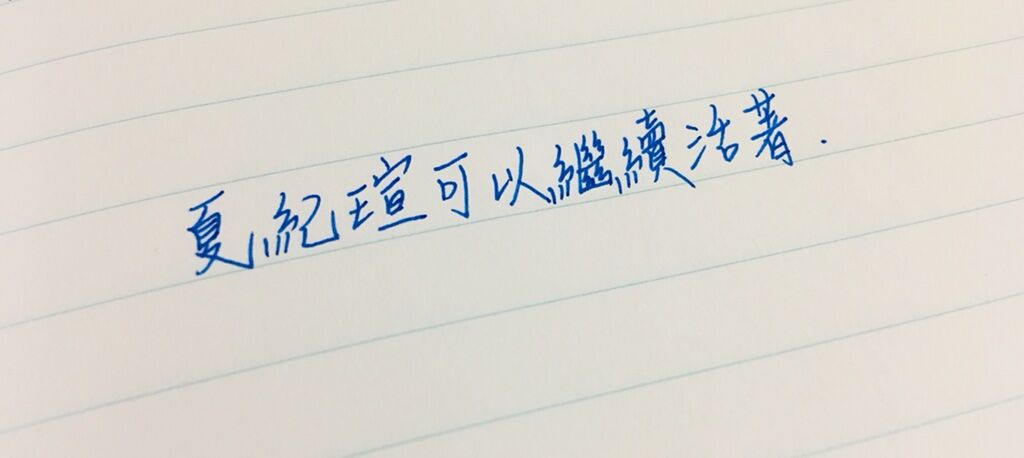 夏紀瑄可以繼續活著.